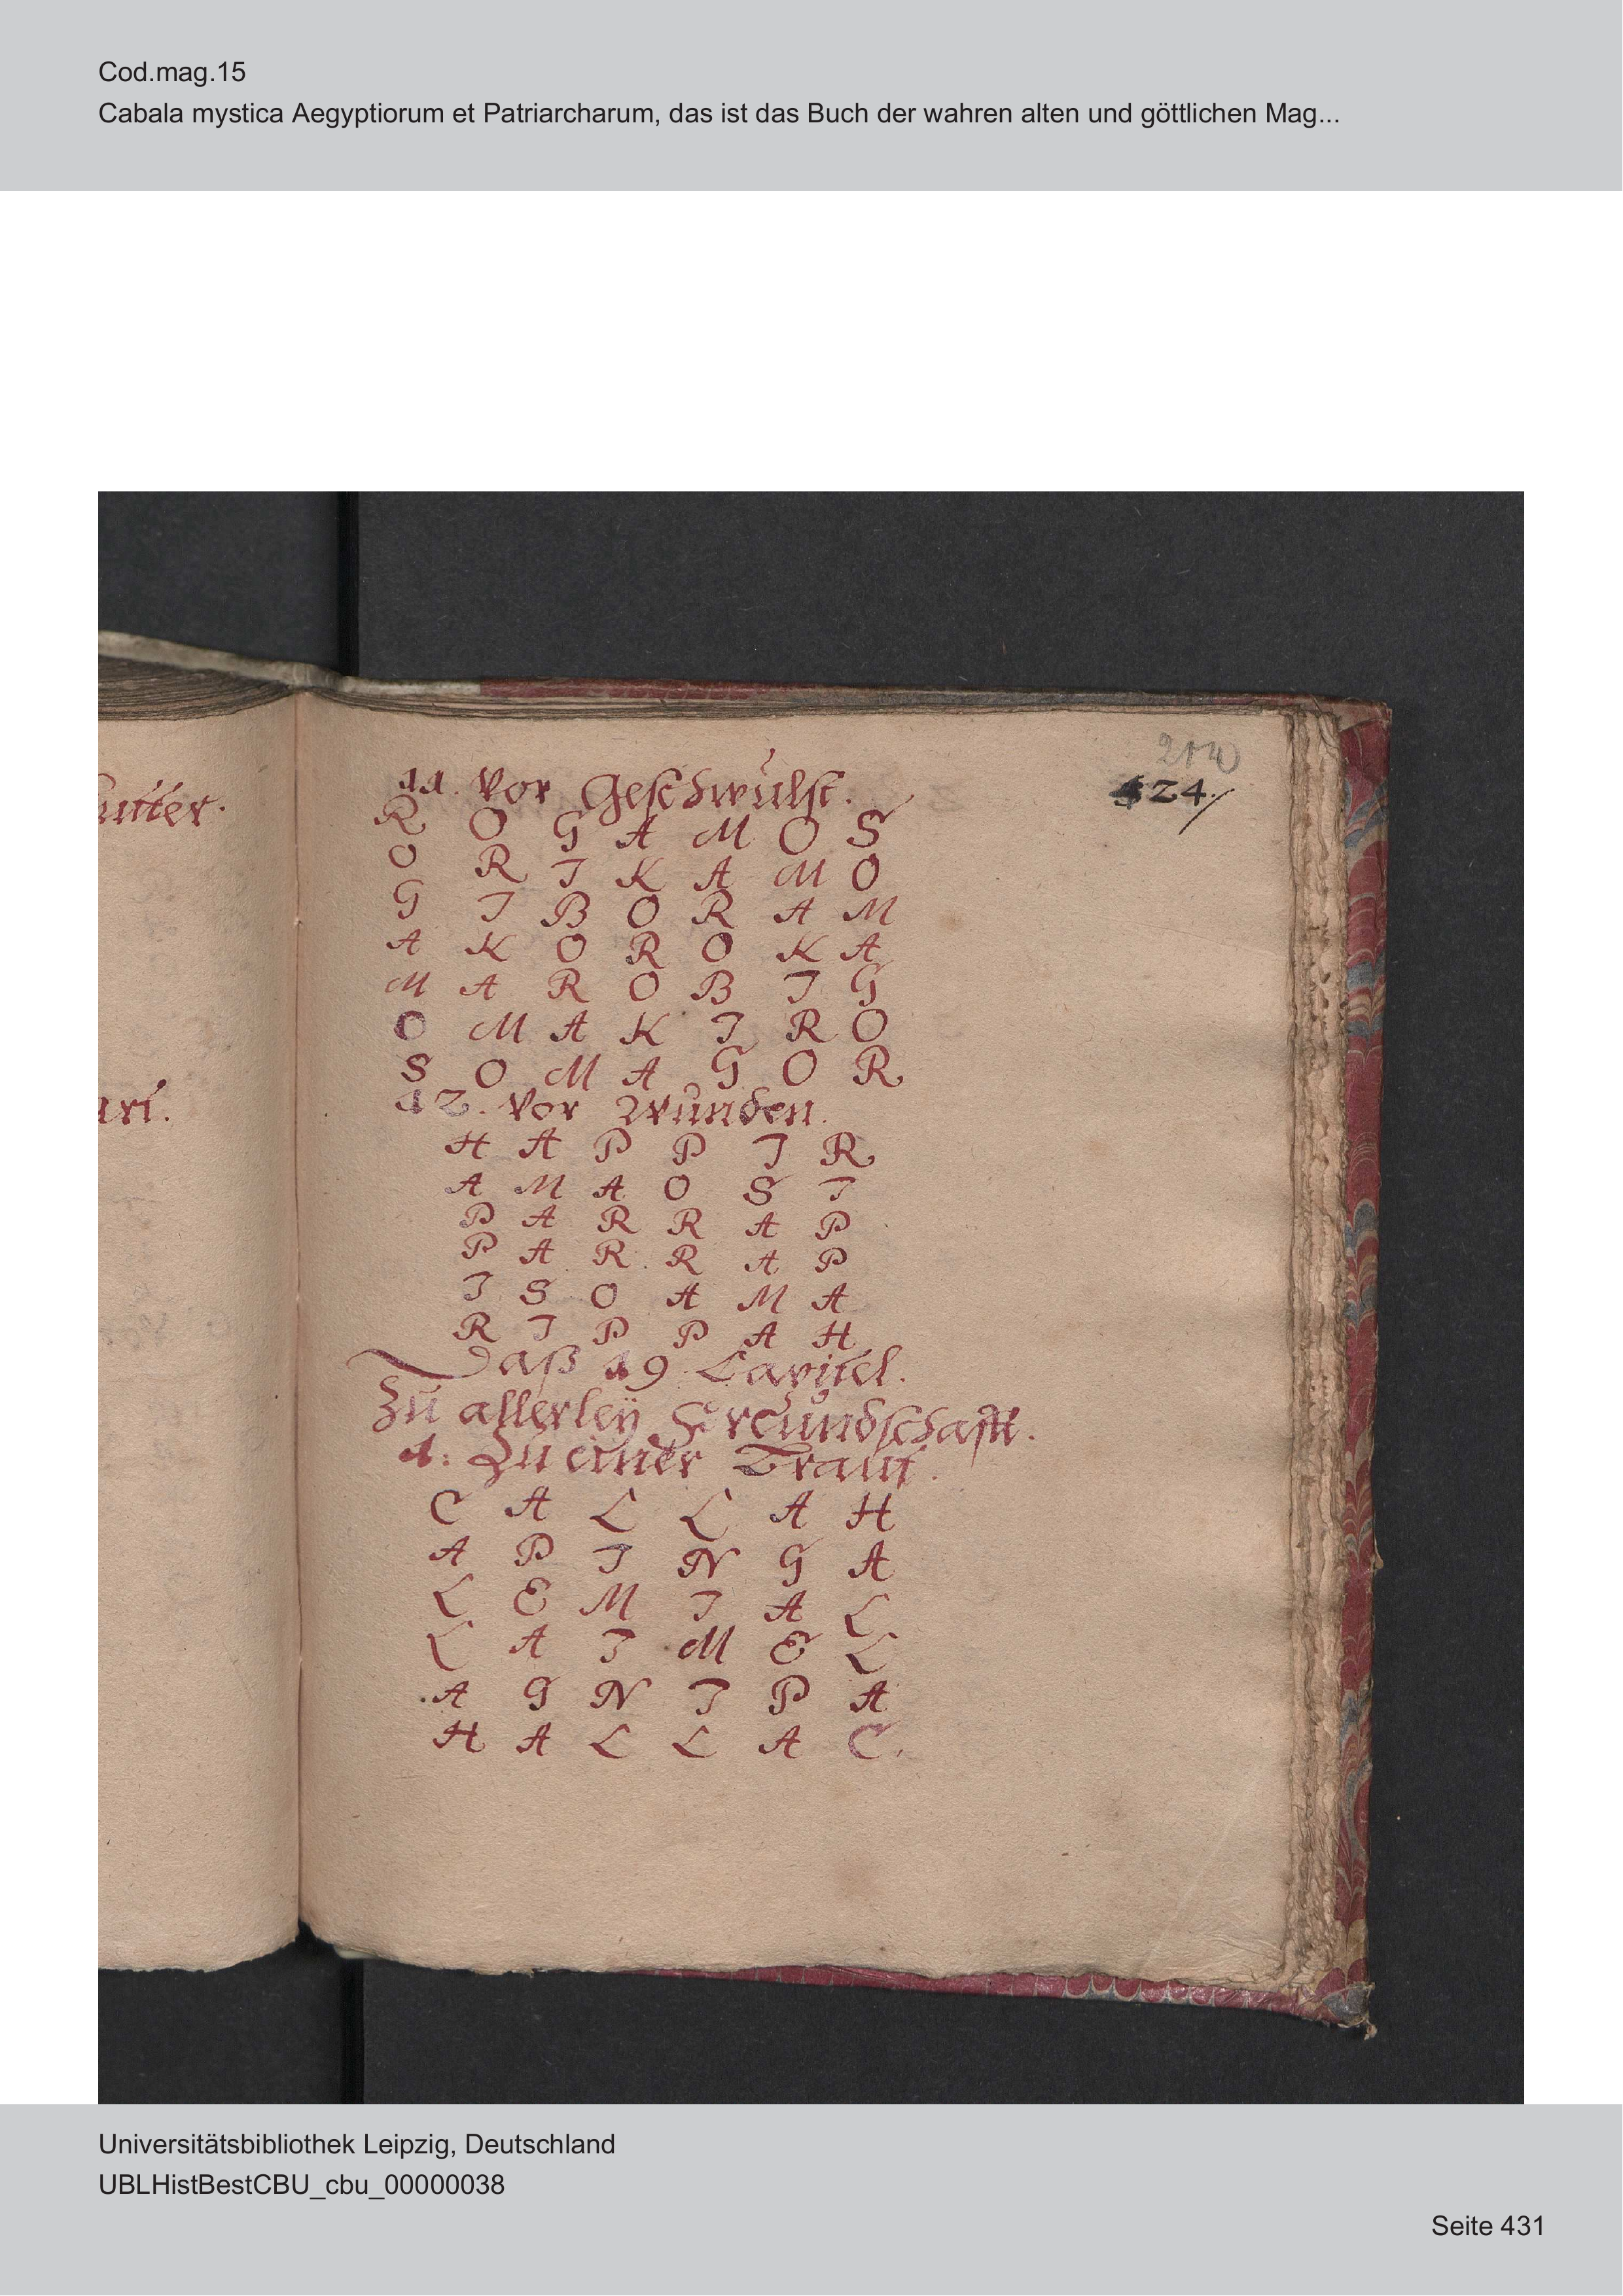 Cod.mag.15
Cabala mystica Aegyptiorum et Patriarcharum, das ist das Buch der wahren alten und göttlichen Mag...
424.
11. Vor Geschwulst.
R O G A M O S
O R I K A M O
G I B O R A M
A K O R O K A
M A R O B I G
O M A K I R O
S O M A G O R
12. Vor Wunden.
H A P P I R
A M A O S I
P A R R A P
P A R R A P
I S O A M A
R I P P A H
Daß 19 Capitel.
Zu allerleÿ Freundschafft.
1. Zu einer Braut.
C A L L A H
A P I N G A
L E M I A L
L A I M E L
A G N I P A
H A L L A C.
Universitätsbibliothek Leipzig, Deutschland
UBLHistBestCBU_cbu_00000038
Seite 431